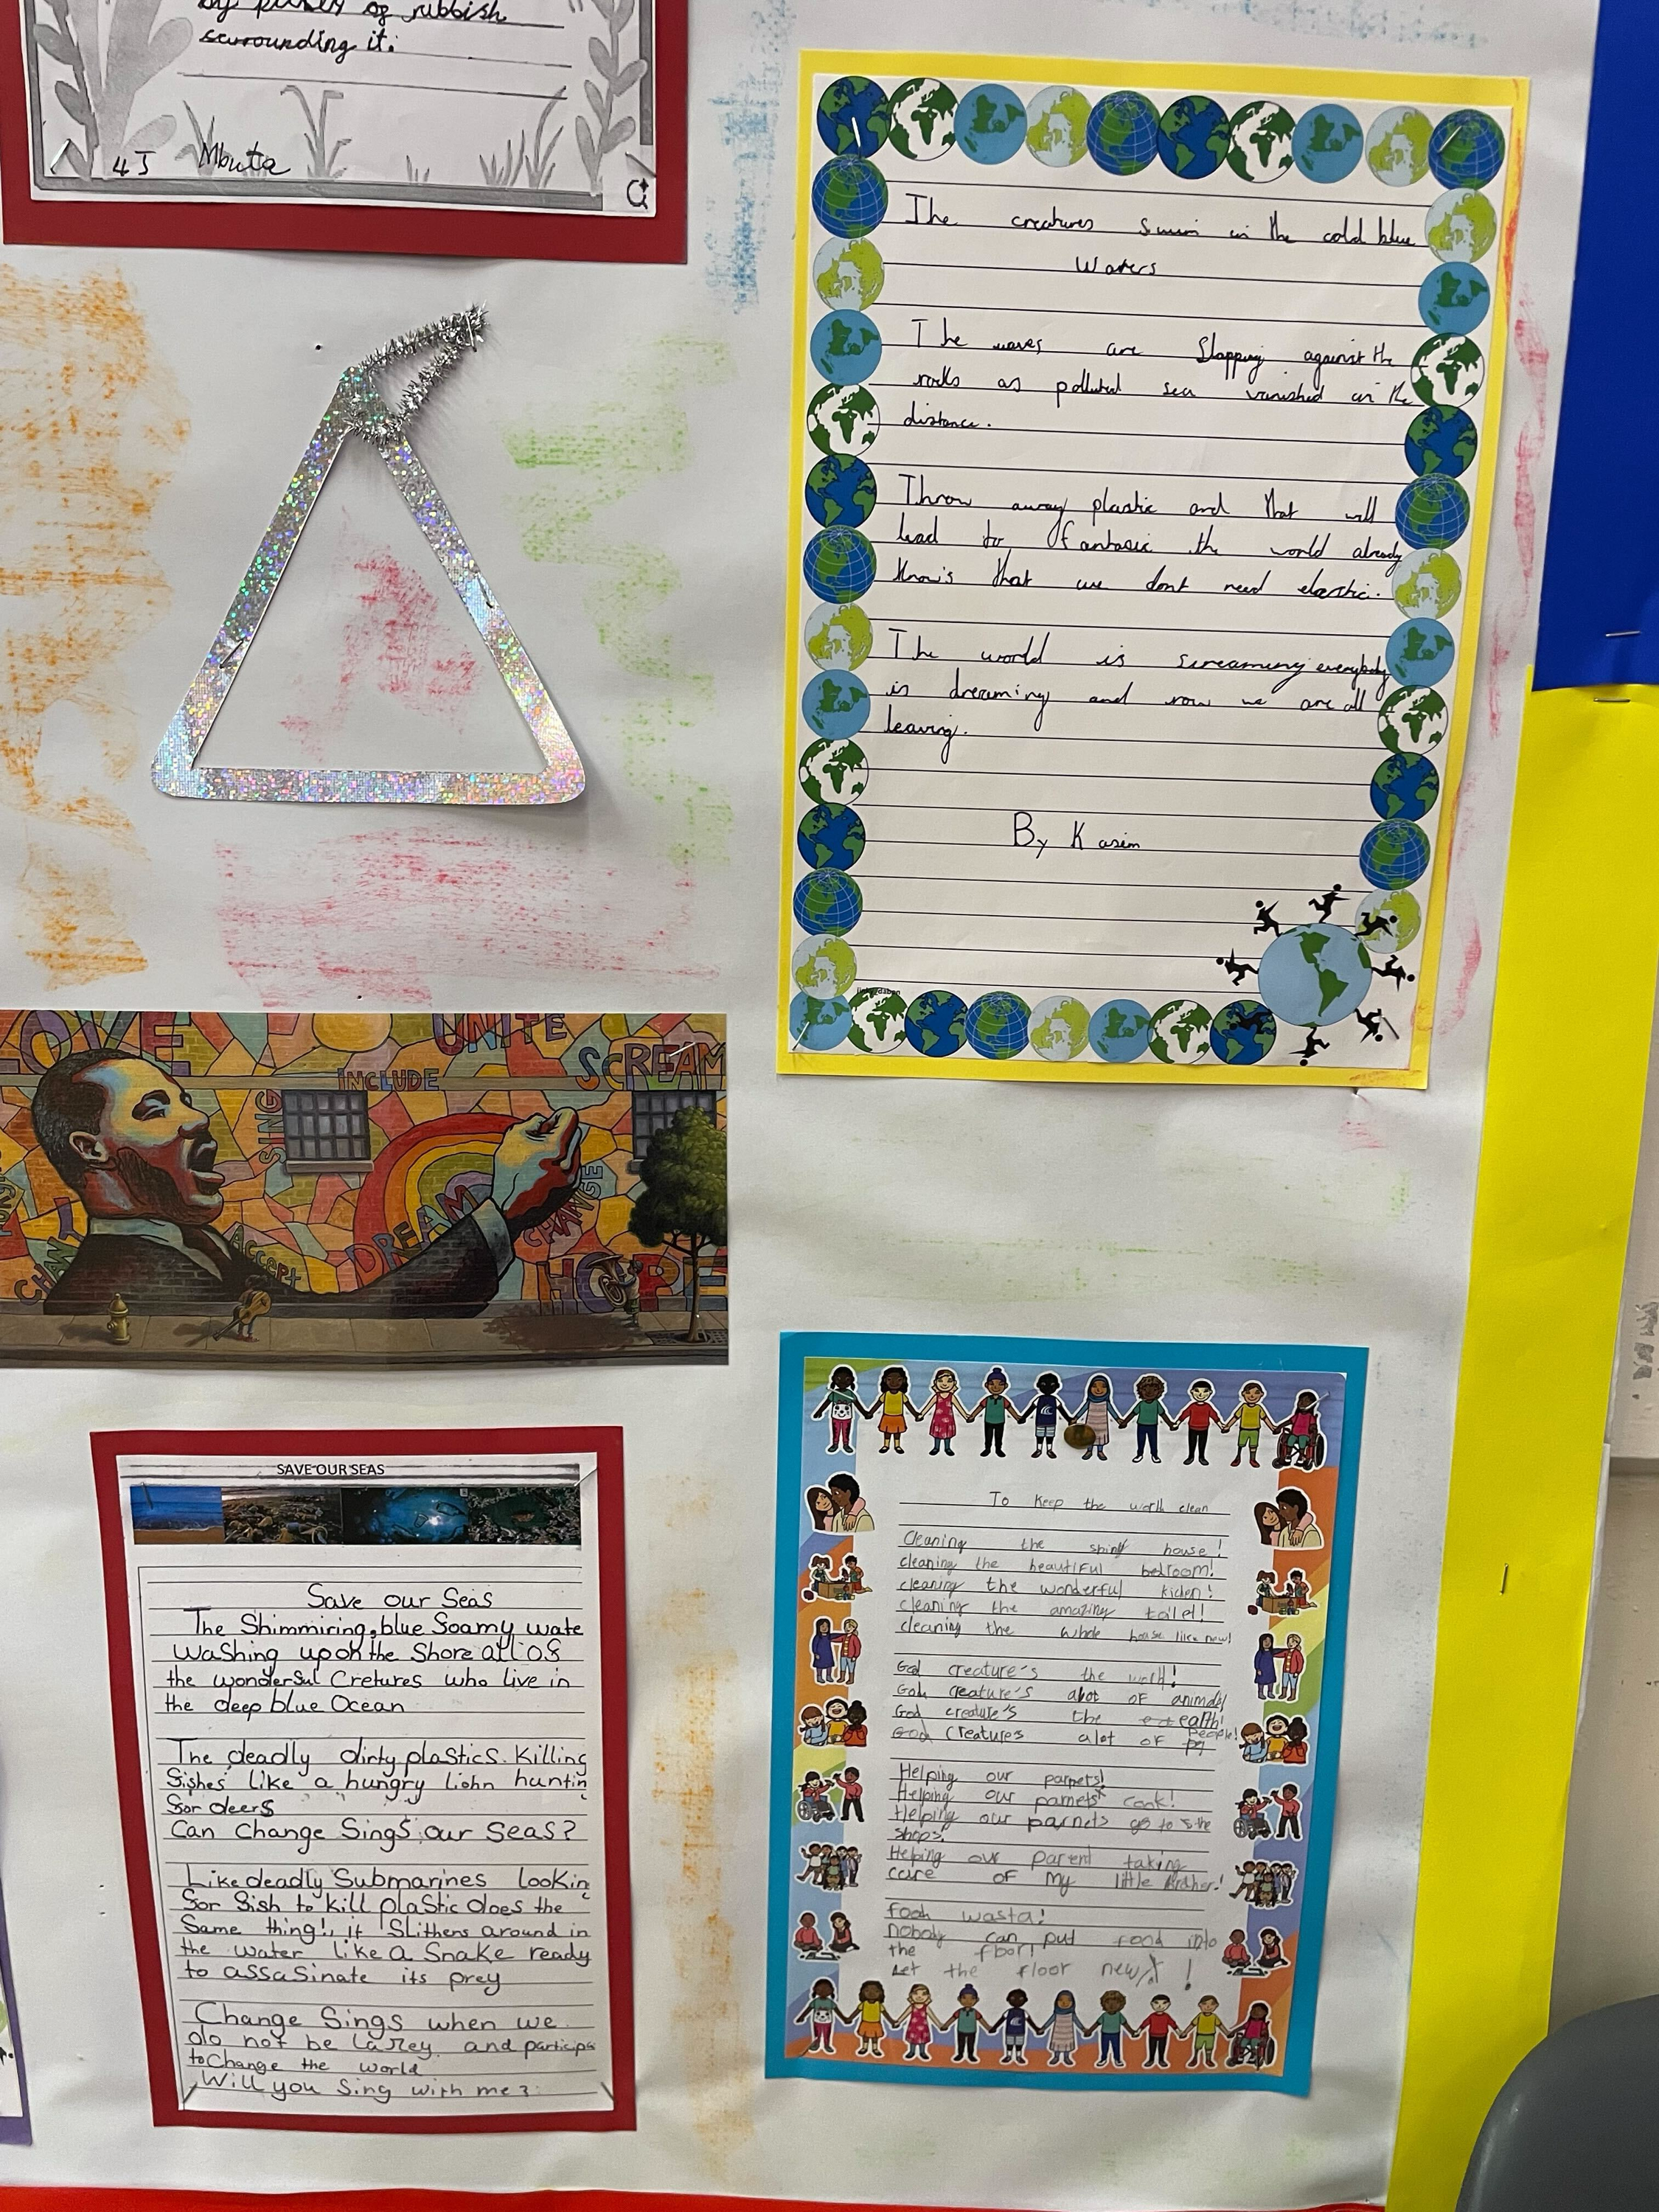 of rubbish
scurrounding it.
4J Mbutta
The creatures swim in the cold blue
Waters
The waves are slapping against the
rocks as polluted sea vanished in the
distance.
Throw away plastic and that will
lead to fantasic the world already
know's that we dont need elastic.
The world is screaming everybody
is dreaming and now we are all
leaving.
By Kasim
LOVE
UNITE
SCREAM
INCLUDE
SING
DREAM
CHANGE
CHANT
ACCEPT
HOPE
SAVE OUR SEAS
Save our Seas
The Shimmiring, blue Soamy wate
washing upon the Shore all of
the wonderful Cretures who live in
the deep blue Ocean
The deadly dirty plastics. Killing
fishes like a hungry Liohn huntin
for deers
Can Change Sings our seas?
Like deadly Submarines lookin
for fish to kill plastic does the
Same thing!, it Slithens around in
the water like a Snake ready
to assasinate its prey
Change Sings when we
do not be Lazey and particips
to Change the world
Will you Sing with me?
To Keep the world clean
Cleaning the shiny house!
cleaning the beautiful bedroom!
cleaning the wonderful kichen!
cleaning the amazing toilet!
cleaning the whole house like new!
God creature's the
God creature's alot of animals
God creature's the ealth!
God creatures alot of people!
Helping our parnets!
Helping our parnets cook!
Helping our parnets go to the
shops.
Helping our parent taking
care of my little brother!
wasta!
nobody can put food into
the floor!
Let the floor new!